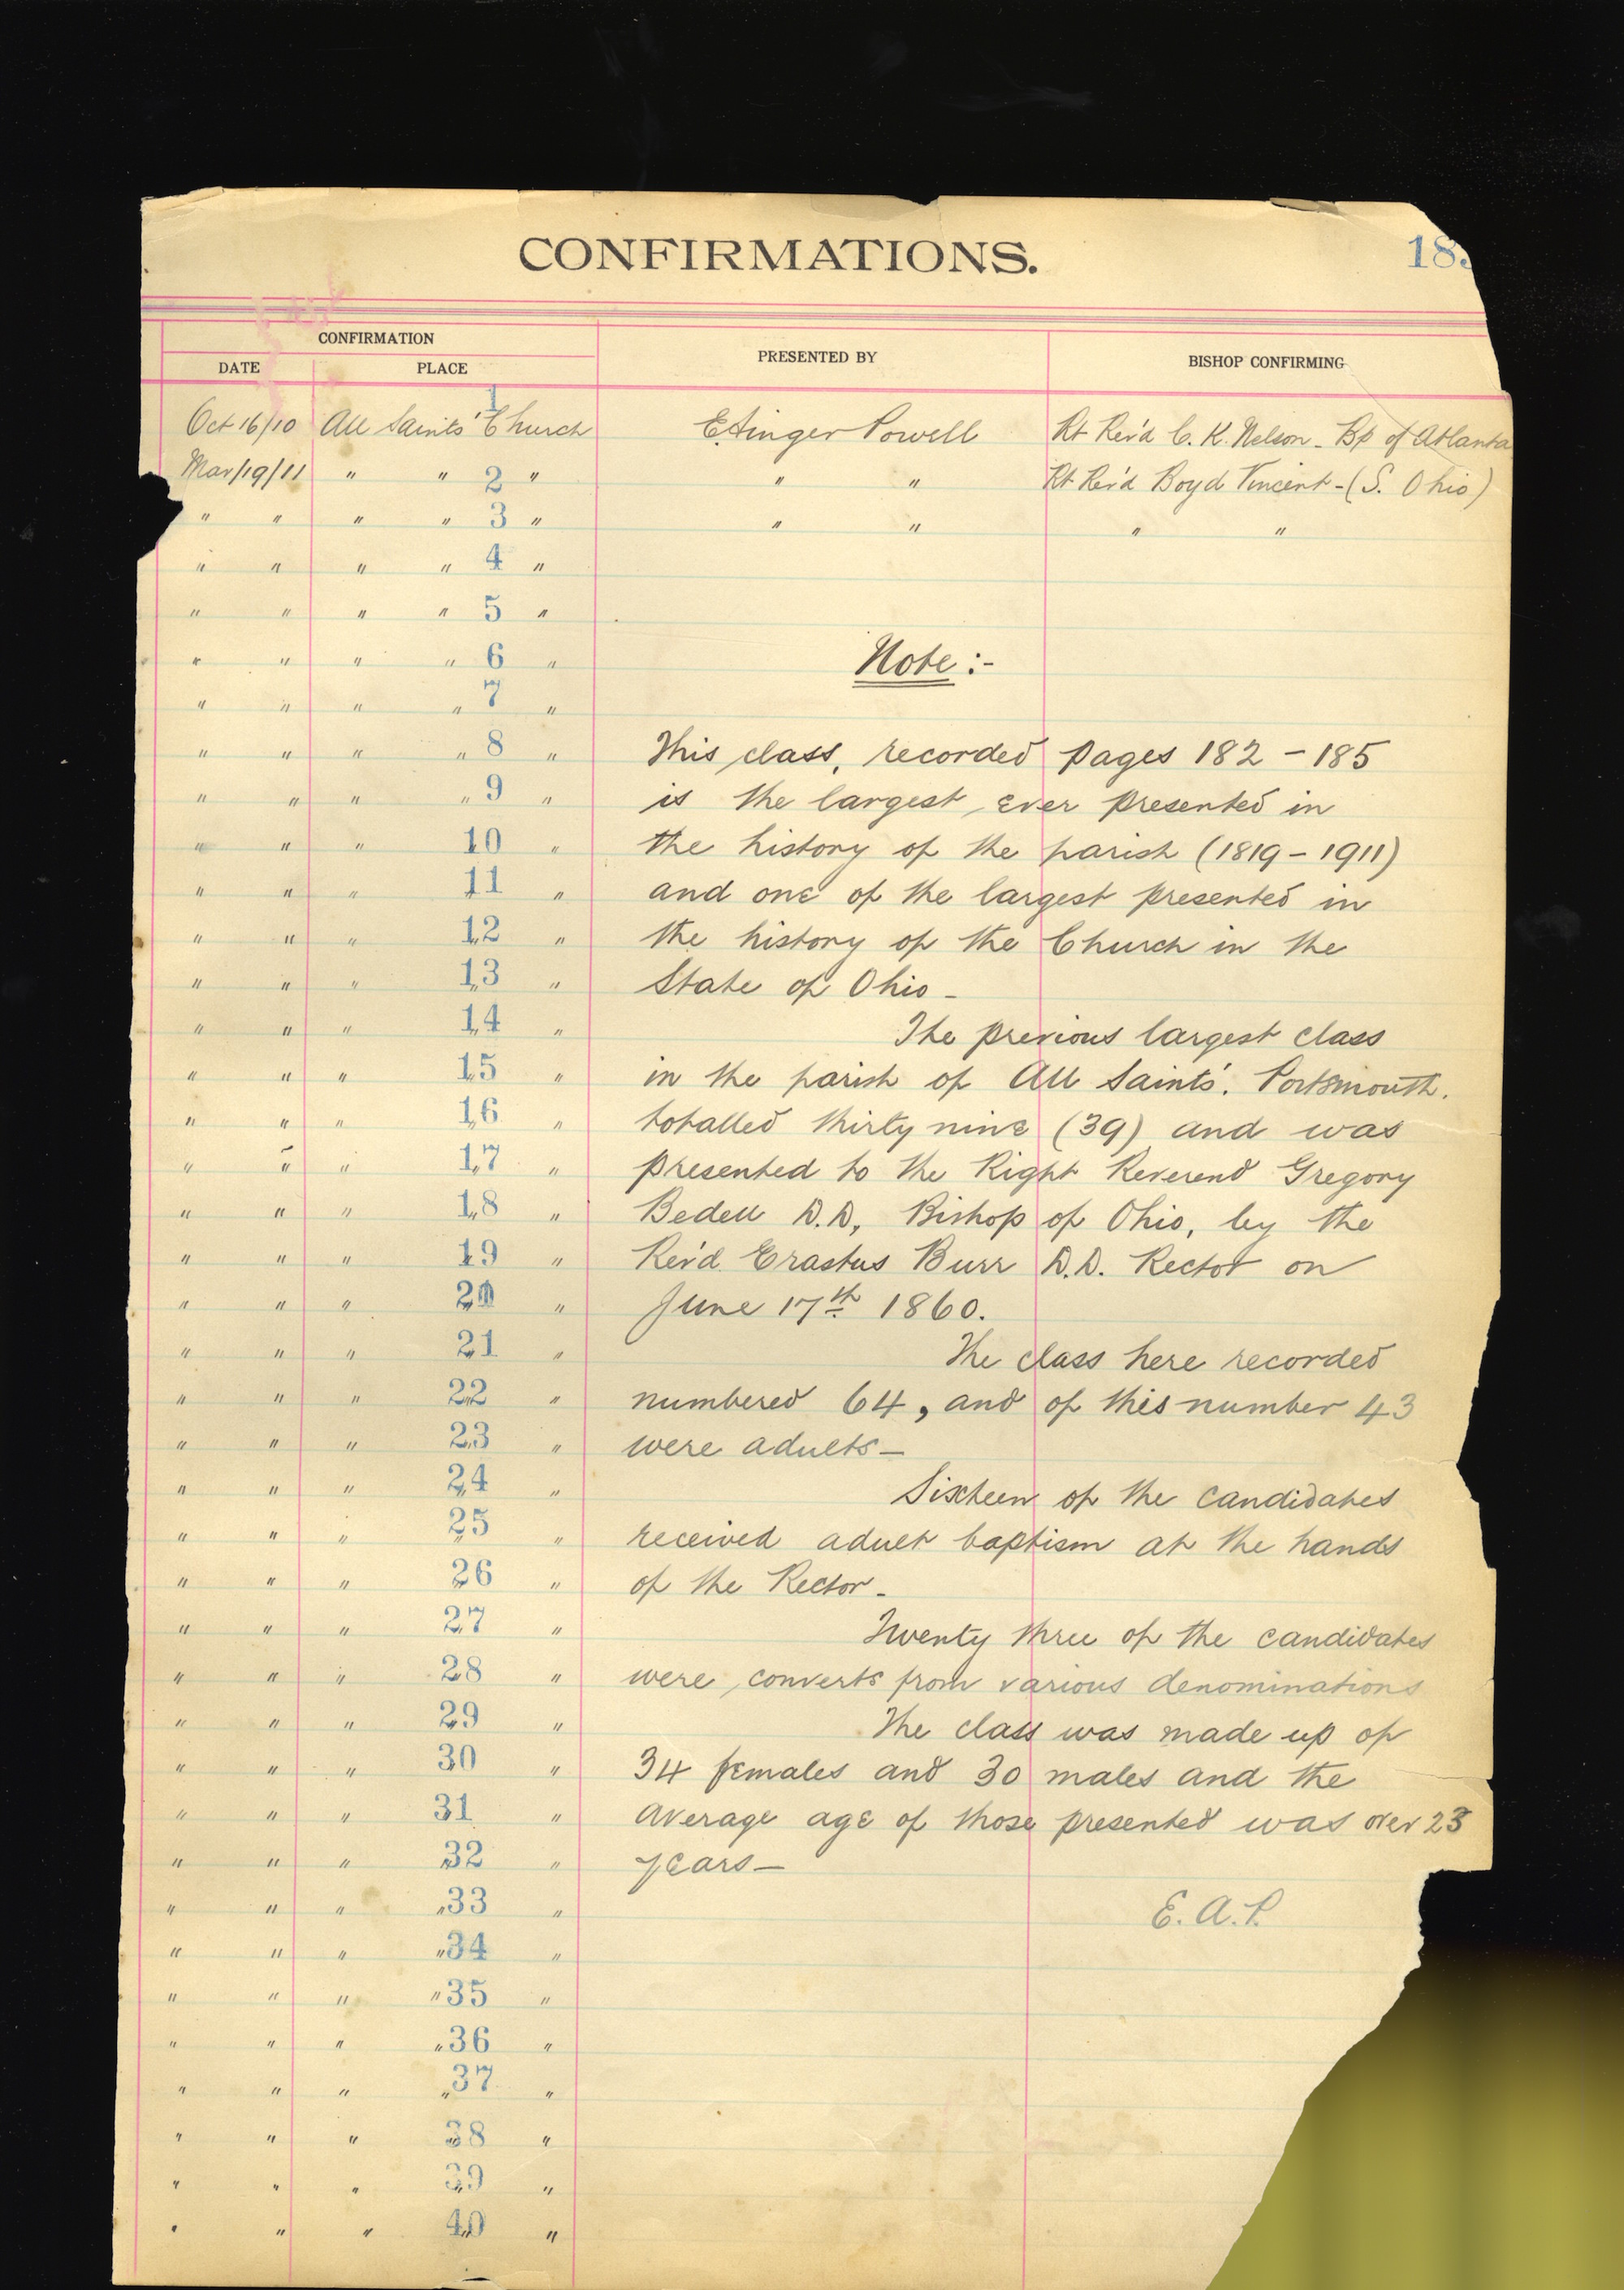 CONFIRMATIONS.
18
CONFIRMATION
DATE PLACE PRESENTED BY BISHOP CONFIRMING
1
Oct 16/10 All Saints' Church E Ainger Powell Rt Rev'd C. K. Nelson - Bp of Atlanta
Mar/19/11 " " 2 " " " Rt Rev'd Boyd Vincent - (S. Ohio)
" " " " 3 " " " " "
" " " " 4 "
" " " " 5 "
" " " " 6 " Note :-
" " " " 7 "
" " " " 8 " This class, recorded pages 182 - 185
" " " " 9 " is the largest ever presented in
" " " 10 " the history of the parish (1819 - 1911)
" " " 11 " and one of the largest presented in
" " " 12 " the history of the Church in the
" " " 13 " State of Ohio -
" " " 14 " The previous largest class
" " " 15 " in the parish of All Saints'. Portsmouth.
" " " 16 " totalled thirty nine (39) and was
" " " 17 " presented to the Right Reverend Gregory
" " " 18 " Bedell D.D, Bishop of Ohio, by the
" " " 19 " Rev'd Erastus Burr D.D. Rector on
" " " 20 " June 17th 1860.
" " " 21 " The class here recorded
" " " 22 " numbered 64, and of this number 43
" " " 23 " were adults -
" " " 24 " Sixteen of the candidates
" " " 25 " received adult baptism at the hands
" " " 26 " of the Rector -
" " " 27 " Twenty three of the candidates
" " " 28 " were converts from various denominations
" " " 29 " The class was made up of
" " " 30 " 34 females and 30 males and the
" " " 31 " average age of those presented was over 23
" " " 32 " years -
" " " " 33 " E. A. P.
" " " " 34 "
" " " " 35 "
" " " " 36 "
" " " " 37 "
" " " 38 "
" " " 39 "
" " " 40 "